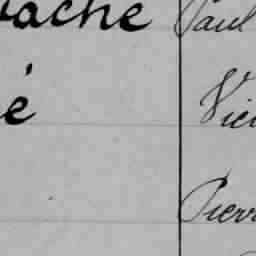 vache Paul
é Vict
Pierr